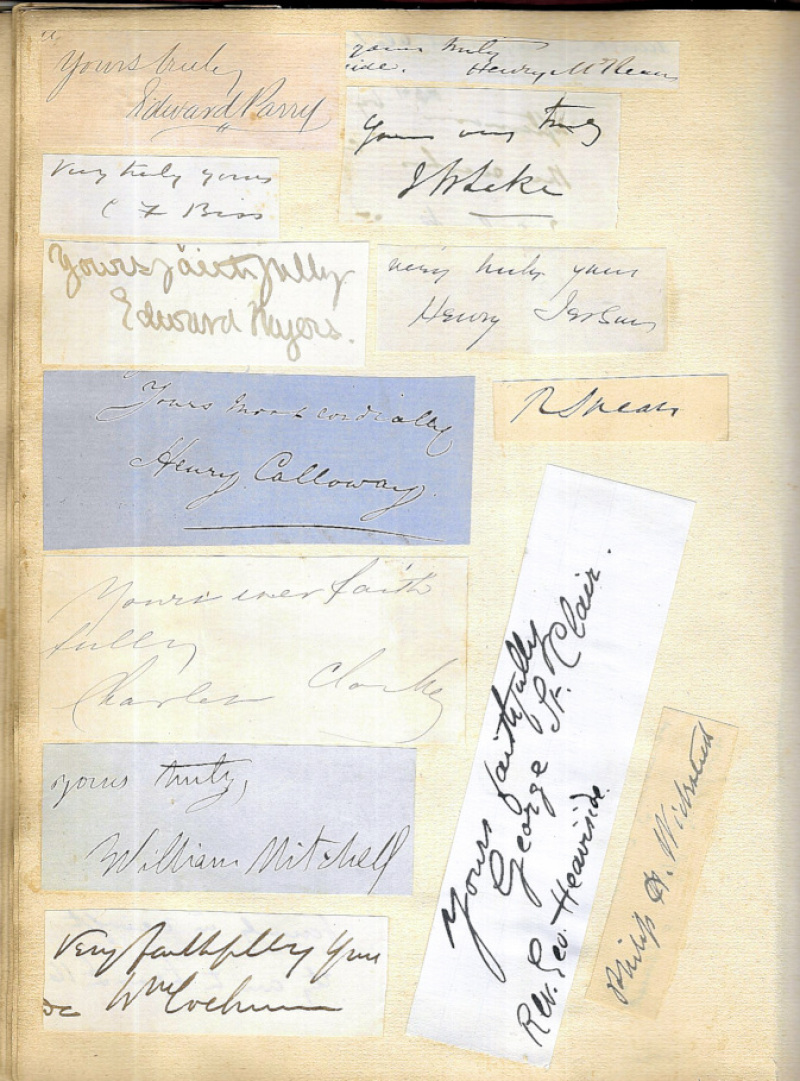 Yours truly
Edward Parry
yours truly
Henry McKean
Yours very truly
Very truly yours
C F Biss
Yours faithfully
Edward Myers.
very truly yours
Henry
Yours most cordially
Henry Calloway.
R Spears
Yours ever faith
fully
Charles Clarke
yours truly,
William Mitchell
Yours faithfully
George St. Clair.
Rev. Geo. Heaviside.
Philip H. Wicksteed
Very faithfully yours
Wm Cochrane